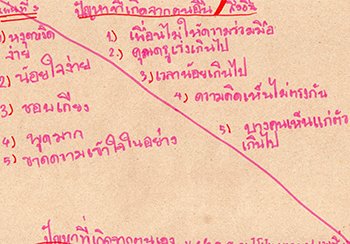 ปัญหาที่เกิดจากคนอื่น
1) หงุดหงิด
ง่าย
2) น้อยใจง่าย
3) ชอบเถียง
4) พูดมาก
5) ขาดความเข้าใจในอย่าง
1) เพื่อนไม่ให้ความร่วมมือ
2) คุณครูเร่งเกินไป
3) เวลาน้อยเกินไป
4) ความคิดเห็นไม่ตรงกัน
5) บางคนเห็นแก่ตัว
เกินไป
ปัญหาที่เกิดจากตนเอง